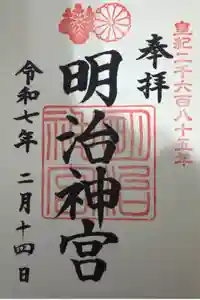 皇紀二千六百八十五年
奉拝
明治神宮
明治
神宮
令和七年 二月十四日